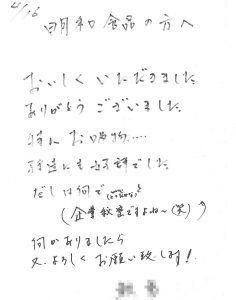 4/16
明和食品の方へ
おいしくいただきました
ありがとうございました
特にお吸物....
友達にも好評でした
だしは何で と
(企業秘密ですよね〜(笑))
何かありましたら
又、よろしくお願い致します!